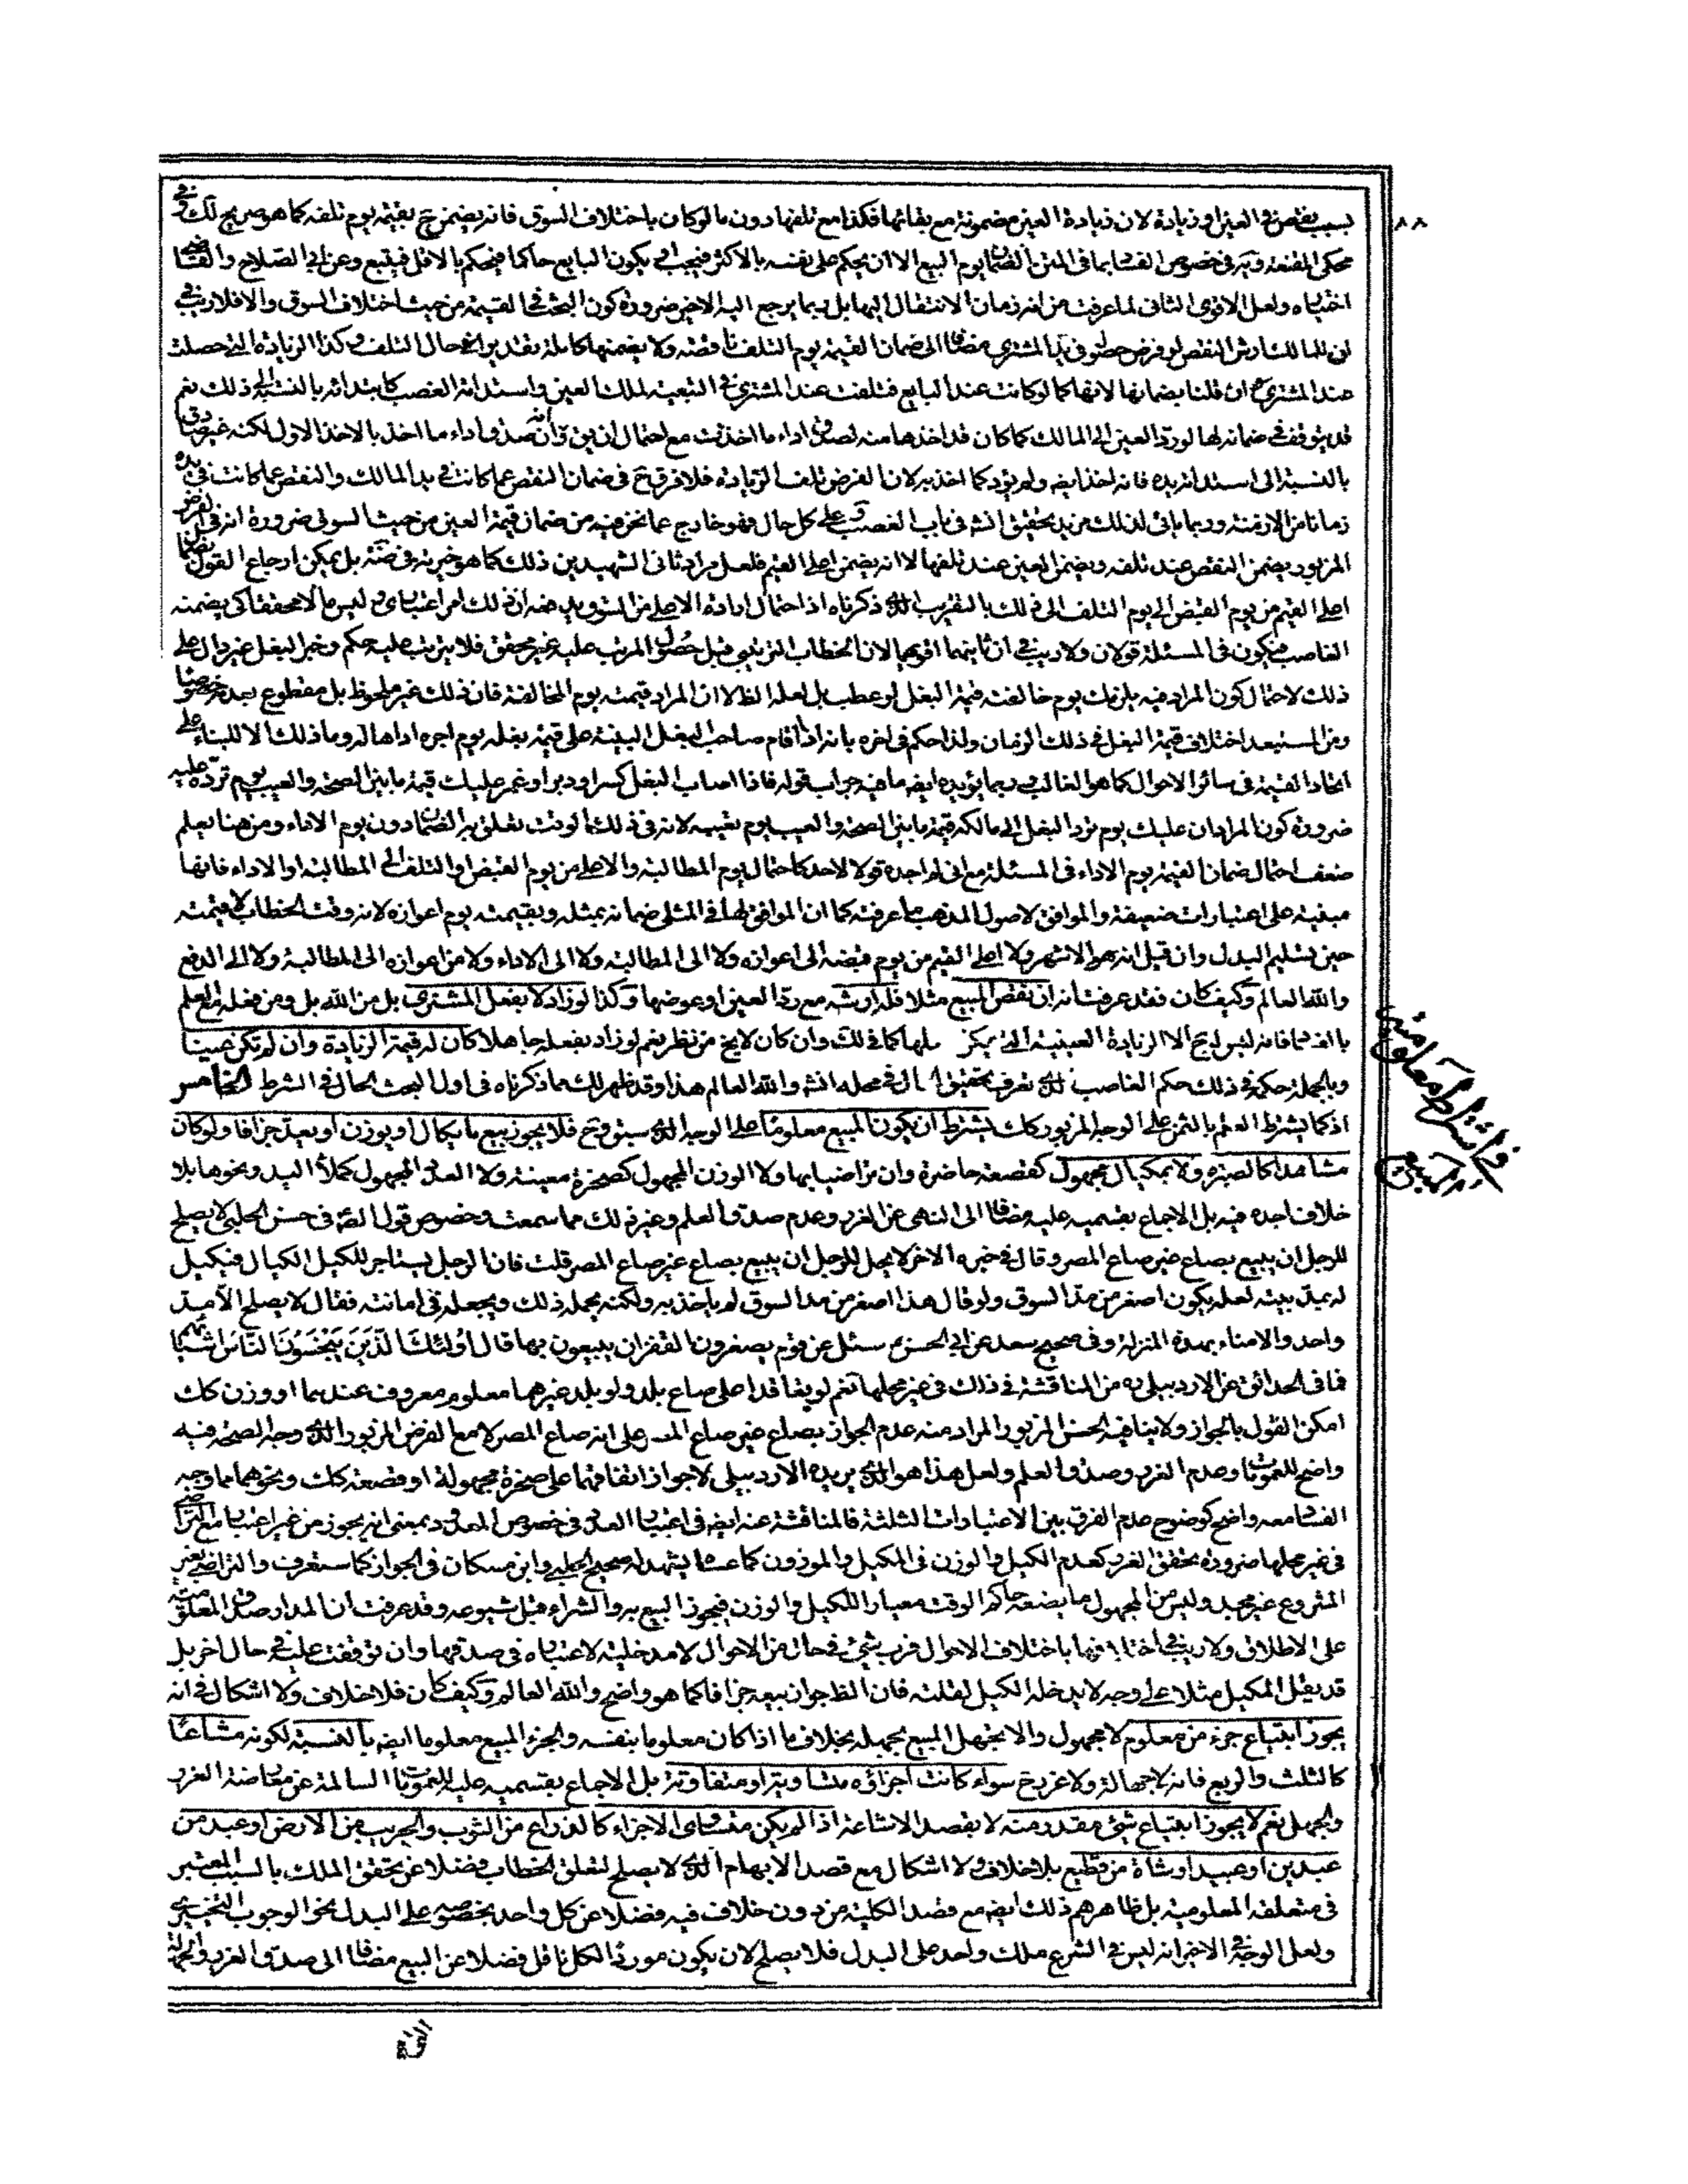 ٨٨
بسبب نقص في العين او زيادة لان زيادة العين مضمونة مع بقائها فكذا مع تلفها دون ما لو كان باختلاف السوق فانه يضمن ح بقيمته يوم تلفه كما هو صريح لك في
محكى المقنعة وير في خصوص الفساد بما في المتن الضمان يوم البيع الا ان يحكم على نفسه بالاكثر فيجب اي يكون البايع حاكما فيحكم بالاقل فيتبع وعن ابي الصلاح والقضا
اختياره ولعل الاقوى الثانى لما عرفت من انه زمان الانتقال اليها بل ربما يرجع اليه الاخير ضرورة كون البحث في القيمة من حيث اختلاف السوق والا فلا ريب في
ان للمالك ارش النقص لو فرض حصوله في يد المشترى مضافا الى ضمان القيمة يوم التلف ناقصة ولا يضمنها كاملة بتقدير حال التلف وكذا الزيادة التي حصلت
عند المشترى ان قلنا بضمانها لانها كما لو كانت عند البايع فتلفت عند المشترى في التبعية لملك العين واستدامة الغصب كابتدائه بالنسبة الى ذلك نعم
قد يتوقف في ضمانه لها لو رد العين الى المالك كما كان قد اخذها منه لصدق اداء ما اخذت مع احتمال وانه صدق اداء ما اخذ بالاخذ الاول لكنه غير صادق
بالنسبة الى استدامة يده فانه اخذ ايضه ولم يؤد كما اخذ بل لان الفرض تلف الزيادة فلا فرق ح في ضمان النقص عما كانت في يد المالك والنقص عما كانت في يده
زمانا من الازمنة وربما ياتى لذلك مزيد تحقيق انشه في باب الغصب وعلى كل حال فهو خارج عما نحن فيه من ضمان قيمة العين من حيث السوق ضرورة انه في الفرض
المزبور يضمن النقص عند تلفه ويضمن العين عند تلفها لا انه يضمن اعلى القيم فلعل مراد ثانى الشهيدين ذلك كما هو خيرته في ضته بل يمكن ارجاع القول بضمان
اعلى القيم من يوم القبض الى يوم التلف الى ذلك بالتقريب الذي ذكرناه اذ احتمال ارادة الاعلى من السوق يدفعه ان ذلك امر اعتبارى وليس مالا محققا كى يضمنه
الغاصب فيكون في المسئلة قولان ولا ريب في ان ثانيهما اقويهما لان الخطاب الترتيبى قبل حصول المرتب عليه غير محقق فلا يترتب عليه حكم وخبر البغل غير دال على
ذلك لاحتمال كون المراد فيه يلزمك يوم خالفته قيمة البغل لو عطب بل لعله الظ لا ان المراد قيمته يوم المخالفة فان ذلك غير ملحوظ بل مقطوع بعدمه خصوصا
ومن المستبعد اختلاف قيمة البغل في ذلك الزمان ولذا حكم في اخره بانه اذا اقام صاحب البغل البينة على قيمة بغله يوم اجره اداها له وما ذلك الا للبناء على
اتحاد القيمة في سائر الاحوال كما هو الغالب وربما يؤيده ايضه ما فيه جواب قوله فاذا اصاب البغل كسر او دبر او غمز عليك قيمة ما بين الصحة والعيب يوم ترده عليه
ضرورة كون المراد ان عليك يوم ترد البغل الى مالكه قيمة ما بين الصحة والعيب يوم تعيبه لانه في ذلك الوقت تعلق به الضمان دون يوم الاداء ومن هنا يعلم
ضعف احتمال ضمان القيمة يوم الاداء في المسئلة مع انى لم اجده قولا لاحد كاحتمال يوم المطالبة والاعلى من يوم القبض او التلف الى المطالبة او الاداء فانها
مبنية على اعتبارات ضعيفة والموافق لاصول المذهب ما عرفته كما ان الموافق لها في المثلى ضمانه بمثله وبقيمته يوم اعوازه لانه وقت الخطاب لا قيمته
حين تسليم البدل وان قيل انه هو الاشهر ولا اعلى القيم من يوم قبضه الى اعوازه ولا الى المطالبة ولا الى الاداء ولا من اعوازه الى المطالبة ولا الى الدفع
والله العالم وكيف كان فقد عرفت انه ان نقص المبيع مثلا فله ارشه مع رد العين او عوضها وكذا لو زاد لا بفعل المشترى بل من الله بل ومن فعله مع العلم
بالفساد فانه ليس له ح الا الزيادة العينية التي يمكن فصلها كما في لك وان كان لا يخ من نظر نعم لو زاد بفعله جاهلا كان له قيمة الزيادة وان لم تكن عينا
وبالجملة حكمه في ذلك حكم الغاصب الذي تعرف تحقيق الحال في محله انشه والله العالم هذا وقد ظهر لك مما ذكرناه في اول البحث الحال في الشرط الخامس
اذ كما يشترط العلم بالثمن على الوجه المزبور كك يشترط ان يكون المبيع معلوما على الوجه الذي سبق وح فلا يجوز بيع ما يكال او يوزن او يعد جزافا ولو كان
مشاهدا كالصبرة ولا بمكيال مجهول كقصعة حاضرة وان تراضيا بها ولا الوزن المجهول كصخرة معينة ولا العدد المجهول كملأ اليد ونحوها بلا
خلاف اجده فيه بل الاجماع بقسميه عليه مضافا الى النهى عن الغرر وعدم صدق العلم وغير ذلك مما سمعت وخصوص قول الصه في حسن الحلبى لا يصلح
للرجل ان يبيع بصاع غير صاع المصر وقال في خبره الاخر لا يحل للرجل ان يبيع بصاع غير صاع المصر قلت فان الرجل يستاجر للكيل الكيال فيكيل
له بمد بيته لعله يكون اصغر من مد السوق ولو قال هذا اصغر من مد السوق لم ياخذ به ولكنه يحمله ذلك ويجعله في امانته فقال لا يصلح الا مد
واحد والامناء بهذه المنزلة وفى صحيح سعد عن ابي الحسن ع سئل عن قوم يصغرون القفزان يبيعون بها قال اولئك الذين يبخسون الناس اشيائهم
فما في الحدائق عن الاردبيلى ره من المناقشة في ذلك في غير محلها نعم لو بقا قدا على صاع بلد ولو بلد غيرهما معلوم معروف عندهما او وزن كك
امكن القول بالجواز ولا ينافيه الحسن المزبور المراد منه عدم الجواز بصاع غير صاع المصر على انه صاع المصر لا مع الفرض المزبور الذي وجه الصحة فيه
واضح للعمومات وعدم الغرر وصدق العلم ولعل هذا هو الذي يريده الاردبيلى لا جواز اتفاقهما على صخرة مجهولة او قصعة كك ونحوهما مما وجه
الفساد معه واضح كوضوح عدم الفرق بين الاعتبارات الثلثة فالمناقشة عنه ايضه في اعتبار العدد في خصوص المعدود بمعنى انه يجوز من غير اعتباره مع التراضى
في غير محلها ضرورة تحقق الغرر كعدم الكيل والوزن في المكيل والموزون كما عساه يشهد له صحيح الحلبى وابن مسكان في الجواز كما ستعرف والتراضى بغير
المشروع غير مجد وليس من المجهول ما يضعه حاكم الوقت معيارا للكيل والوزن فيجوز البيع به والشراء قبل شيوعه وقد عرفت ان المدار صدق المعلومية
على الاطلاق ولا ريب في اختلافها باختلاف الاحوال فرب شئ في حال من الاحوال لا مدخلية لاعتباره في صدقها وان توقفت عليه في حال اخر بل
قد يقل المكيل مثلا على وجه لا يدخله الكيل لقلته فان الظ جواز بيعه جزافا كما هو واضح والله العالم وكيف كان فلا خلاف ولا اشكال في انه
يجوز ابتياع جزء من معلوم لا مجهول والا يجهل المبيع بجهله بخلاف ما اذا كان معلوما بنفسه والجزء المبيع معلوما ايضه بالنسبة لكونه مشاعا
كالثلث والربع فانه لا جهالة ولا غرر ح سواء كانت اجزاؤه متساوية او متفاوتة بل الاجماع بقسميه عليه للعمومات السالمة عن معارضة الغرر
والجهل نعم لا يجوز ابتياع شئ مقدر منه لا بقصد الاشاعة اذا لم يكن متساوى الاجزاء كالذراع من الثوب والجريب من الارض او عبد من
عبدين او عبيد او شاة من قطيع بلا خلاف ولا اشكال مع قصد الابهام الذي لا يصلح لتعلق الخطاب فضلا عن تحقق الملك بالسبب المعتبر
في متعلقه المعلومية بل ظاهرهم ذلك ايضه مع قصد الكلية من دون خلاف فيه فضلا عن كل واحد بخصوصه على البدل نحو الوجوب التخييرى
ولعل الوجه في الاخير انه ليس في الشرع ملك واحد على البدل فلا يصلح لان يكون موردا لكل ناقل فضلا عن البيع مضافا الى صدق الغرر والجهالة
في اشتراط معلومية المبيع